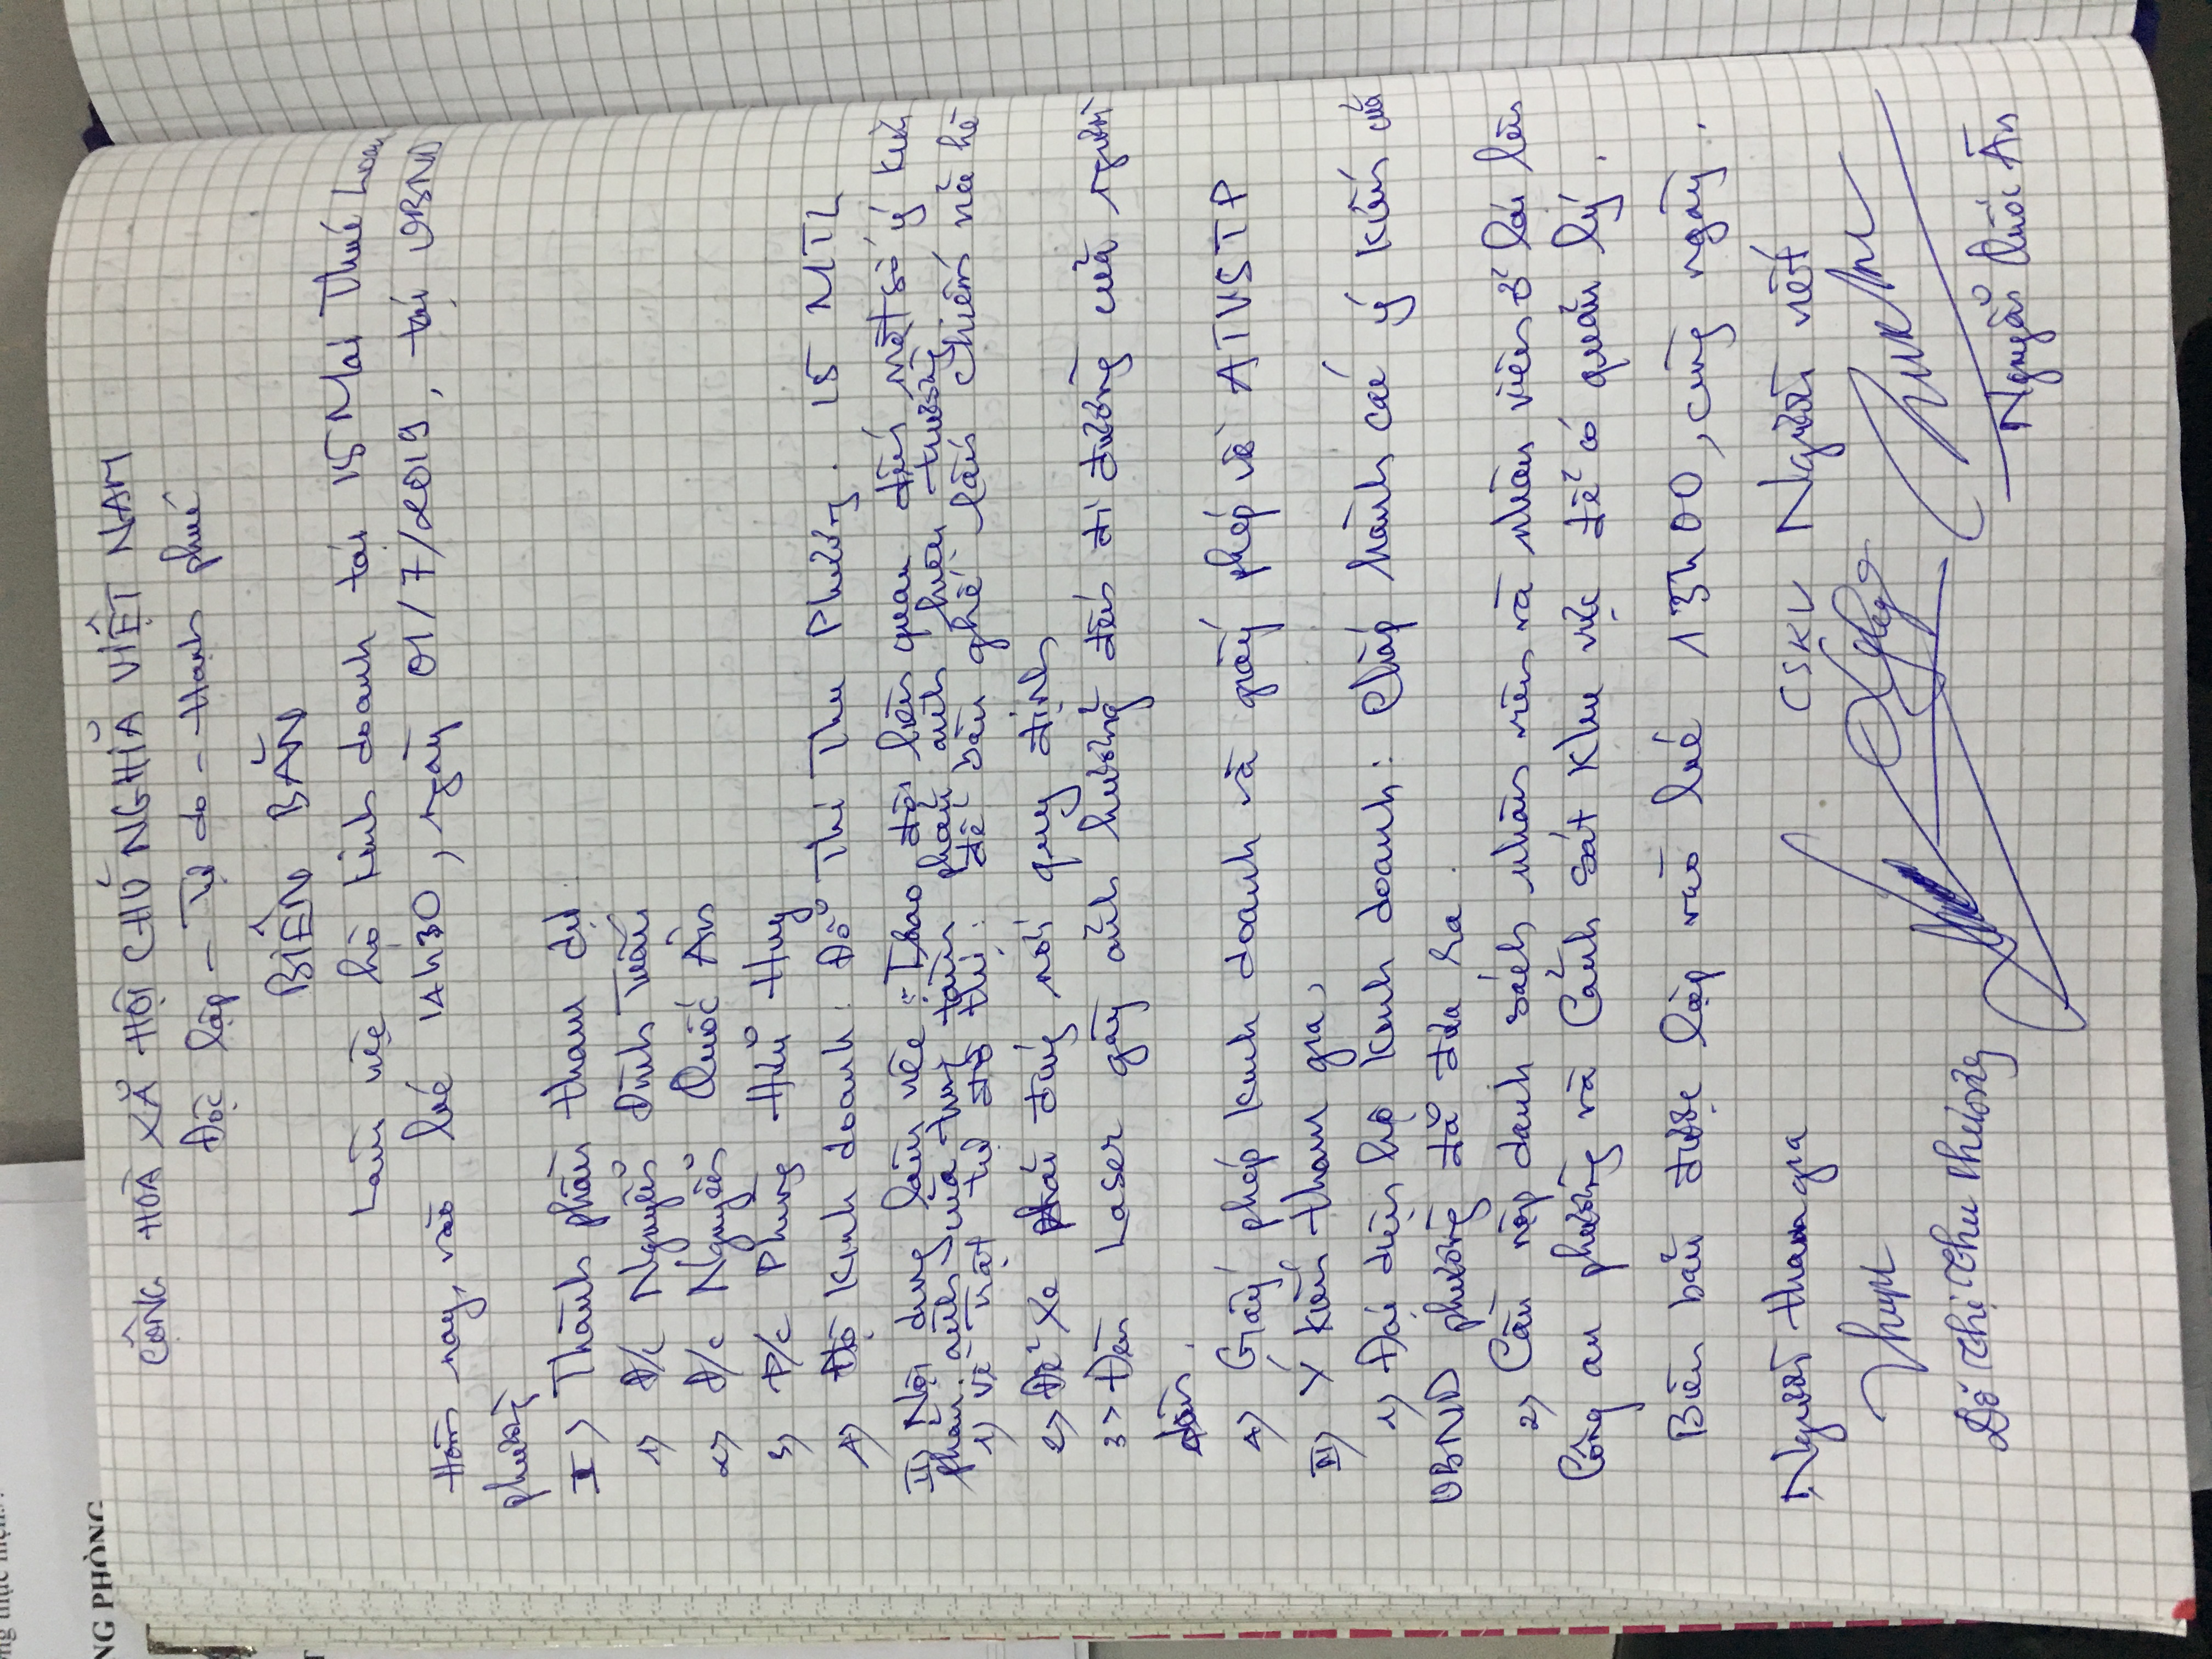 CỘNG HÒA XÃ HỘI CHỦ NGHĨA VIỆT NAM
Độc lập - Tự do - Hạnh phúc
BIÊN BẢN
Làm việc hộ kinh doanh tại 15 Mai Thúc Loan
Hôm nay, vào lúc 14h30, ngày 01/7/2019, tại UBND
phường
I> Thành phần tham dự
1) Đ/c Nguyễn Đình Tuấn
2) Đ/c Nguyễn Quốc Ân
3) Đ/c Phùng Hữu Huy
4) Hộ kinh doanh: Đỗ Thị Thu Phương. 15 MTL
II) Nội dung làm việc: Thao đổi liên quan đến một số ý kiến
phản ánh của trung tâm phản ánh hiện trường
1) Về trật tự đô thị: để bàn ghế lấn chiếm vỉa hè
2) Để xe phải đúng nơi quy định
3> Đèn Laser gây ảnh hưởng đến đi đường của người
dân.
4) Giấy phép kinh doanh và giấy phép về ATVSTP
III) Ý kiến tham gia,
1) Đại diện hộ kinh doanh: Chấp hành các ý kiến của
UBND phường đã đưa ra.
2) Cần nộp danh sách nhân viên và nhân viên ở lại lên
Công an phường và Cảnh sát Khu vực để có quản lý.
Biên bản được lập vào lúc 15h00, cùng ngày.
Người tham gia CSKV Người viết
Đỗ Thị Thu Phương Nguyễn Quốc Ân
NG PHÒNG